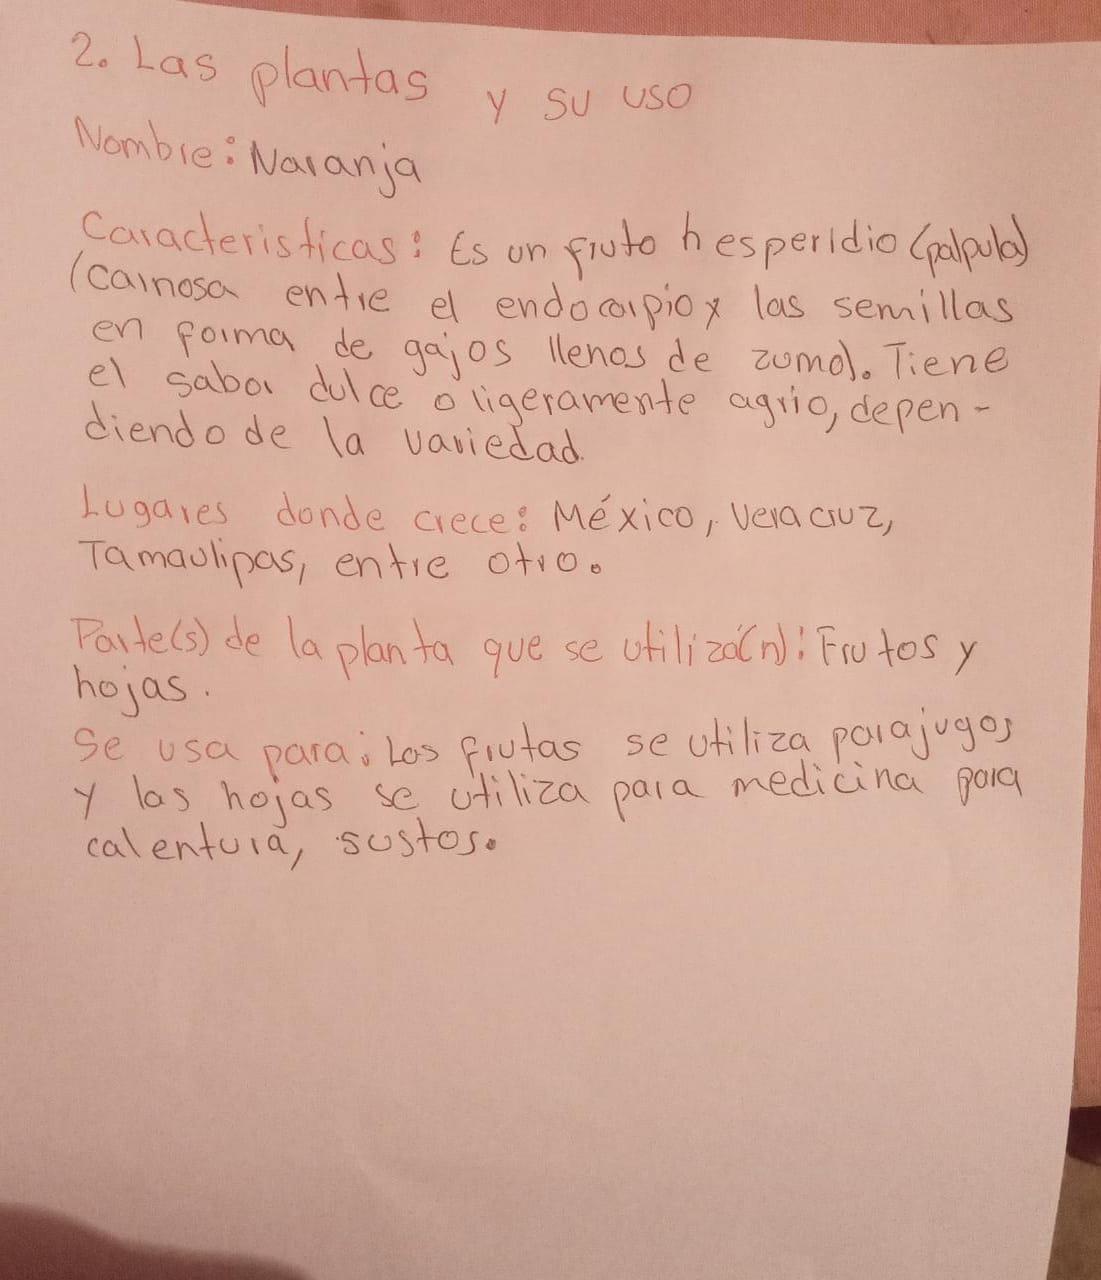 2. Las plantas y su uso
Nombre: Naranja
Caracteristicas: Es un fruto hesperidio (palpula)
(carnosa entre el endocarpio y las semillas
en forma de gajos llenos de zumo). Tiene
el sabor dulce o ligeramente agrio, depen-
diendo de la variedad.
Lugares donde crece: México, Veracruz,
Tamaulipas, entre otro.
Parte(s) de la planta que se utiliza(n): Frutos y
hojas.
Se usa para: Las frutas se utiliza para jugos
y las hojas se utiliza para medicina para
calentura, sustos.